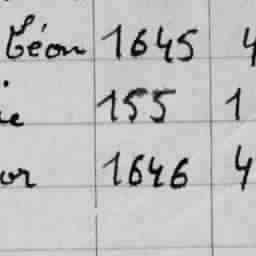 Léon 1645 4
ie 155 1
or 1646 4